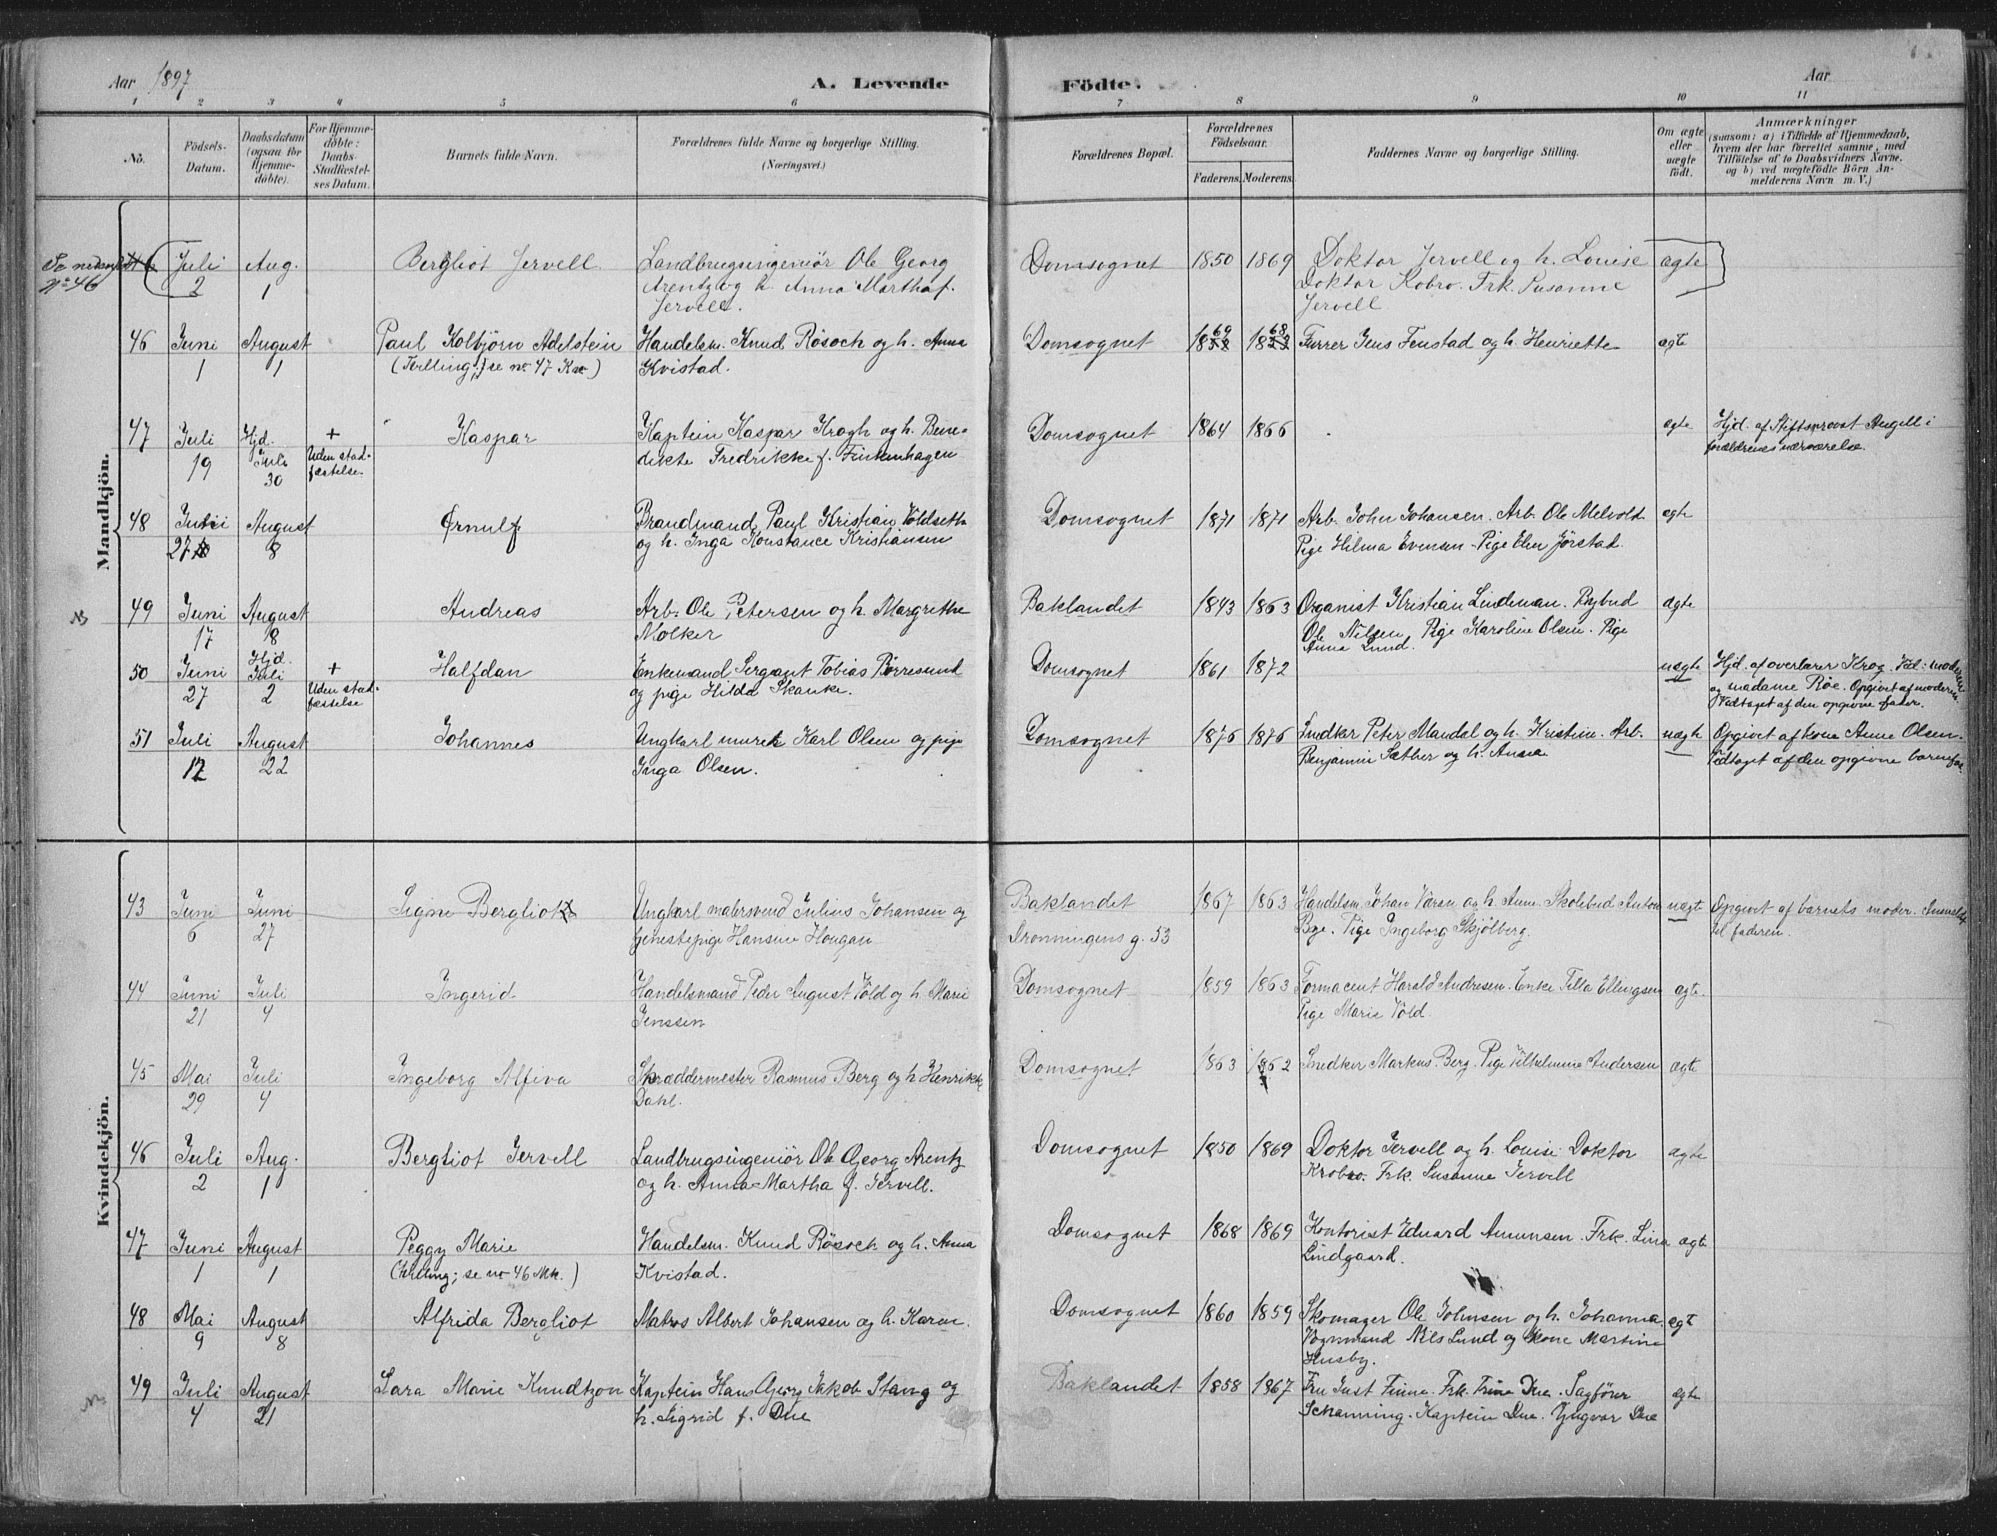 Aar 1897
A. Levende Födte.
Aar
1 2 3 4 5 6 7 8 9 10 11
No.
Födsels-Datum.
Daabsdatum (ogsaa for Hjemme-döbte).
For Hjemme-döbte: Daabs-Stadfæstel-ses Datum.
Barnets fulde Navn.
Forældrenes fulde Navne og borgerlige Stilling.
(Næringsvei.)
Forældrenes Bopæl.
Forældrenes Födselsaar.
Faderens. Moderens.
Faddernes Navne og borgerlige Stilling.
Om ægte eller uægte födt.
Anmærkninger
(saasom: a) i Tilfælde af Hjemmedaab,
hvem der har forrettet samme, med
Tilföielse af to Daabsvidners Navne,
og b) ved uægtefödte Börn An-
melderens Navn m. V.)
Mandkjön.
Se nedenfor
No 46
Juli Aug. Bergliot Jervell. Landbrugsingeniør Ole Georg Domsognet 1850 1869 Doktor Jervell og h. Louise ægte
2 1 Arentz og h. Anna Martha f. Doktor Kobro. Frk. Susanne
Jervell. Jervell
46 Juni August Paul Kolbjörn Adelstein Handelsm. Knud Rösoch og h. Anna Domsognet 1869 1868 Furrer Jens Fenstad og h. Henriette ægte
1 1 (Tvilling; se no 47 Kv.) Kvistad.
47 Juli Hjd. + Kaspar Kaptein Kaspar Krogh og h. Bene- Domsognet 1864 1866 ægte Hjd. af Stiftsprovst Angell i
19 Juli Uden stad- dikte Fredrikke f. Finkenhagen forældrenes nærværelse.
30 fæstelse
48 Juli August Ørnulf Brandmand Paul Kristian Voldseth Domsognet 1871 1871 Arb. John Johansen. Arb. Ole Melvold ægte
27 8 og h. Inga Konstance Kristiansen Pige Hilma Evensen - Pige Elen Jørstad.
49 Juni August Andreas Arb. Ole Petersen og h. Margrethe Baklandet 1843 1863 Organist Kristian Lindeman. Rybud ægte
17 8 Molker Ole Nilsen, Pige Karoline Olsen. Pige
Anna Lund.
50 Juni Hjd. + Halfdan Enkemand Sergeant Tobias Börresund Domsognet 1861 1872 uægte Hjd. af overlærer Krog. Fad: moderen
27 Juli Uden stad- og pige Hilda Skanke. og madame Röe. Opgivet af moderen
2 fæstelse Vedtaget af den opgivne fader.
51 Juli August Johannes Ungkarl murer Karl Olsen og pige Domsognet 1876 1876 Snedker Peter Mandal og h. Kristine. Arb. uægte Opgivet af kone Anne Olsen.
12 22 Inga Olsen. Benjamin Sæther og h. Anna Vedtaget af den opgivne barnefar.
Kvindekjön.
43 Juni Juni Signe Bergliot Ungkarl malersvend Julius Johansen og Baklandet 1867 1863 Handelsm. Johan Værsen og h. Anne. Skolebud Anton uægte Opgivet af barnets moder. Anmeldt
6 27 tjenestepige Hansine Hougan Dronningens g. 53 Bye. Pige Ingeborg Skjölberg. til faderen.
44 Juni Juli Ingerid Handelsmand Peder August Vold og h. Marie Domsognet 1859 1863 Farmacent Harald Andresen. Enke Tilla Ellingsen ægte.
21 4 Jenssen Pige Marie Vold.
45 Mai Juli Ingeborg Alfiva Skræddermester Rasmus Berg og h. Henrikke Domsognet 1863 1862 Snedker Markus Berg. Pige Vilhelmine Andersen ægte
29 4 Dahl.
46 Juli Aug. Bergliot Jervell Landbrugsingeniör Ole Georg Arentz Domsognet 1850 1869 Doktor Jervell og h. Louise Doktor ægte
2 1 og h. Anna Martha f. Jervell. Krobro. Frk. Susanne Jervell
47 Juni August Peggy Marie Handelsm. Knud Rösoch og h. Anna Domsognet 1868 1869 Kontorist Edvard Amunsen. Frk. Lina ægte
1 1 (tvilling; se no 46 Mk.) Kvistad. Lindgaard.
48 Mai August Alfrida Bergliot Matros Albert Johansen og h. Karen. Domsognet 1860 1859 Skomager Ole Johnsen og h. Johanna. ægte
9 8 Vognmand Nils Lund og kone Martine
Husby.
49 Juli August Sara Marie Knudtzon Kaptein Hans Georg Jakob Stang og Baklandet 1858 1867 Fru Just Finne. Frk. Trine Due. Sagförer ægte
4 21 h. Sigrid f. Due Schanning. Kaptein Due. Yngvar Due